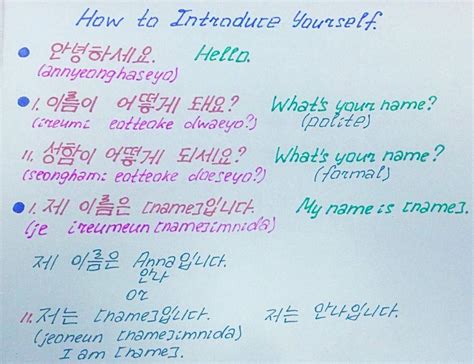 How to Introduce Yourself.
안녕하세요. Hello.
(annyeonghaseyo)
1. 이름이 어떻게 돼요? What's your name?
(ireumi eotteoke dwaeyo?) (polite)
11. 성함이 어떻게 되세요? What's your name?
(seonghami eotteoke doeseyo?) (formal)
1. 제 이름은 [name]입니다. My name is [name].
(je ireumeun [name]imnida)
제 이름은 Anna입니다.
안나
or
11. 저는 [name]입니다. 저는 안나입니다.
(jeoneun [name]imnida)
I am [name].